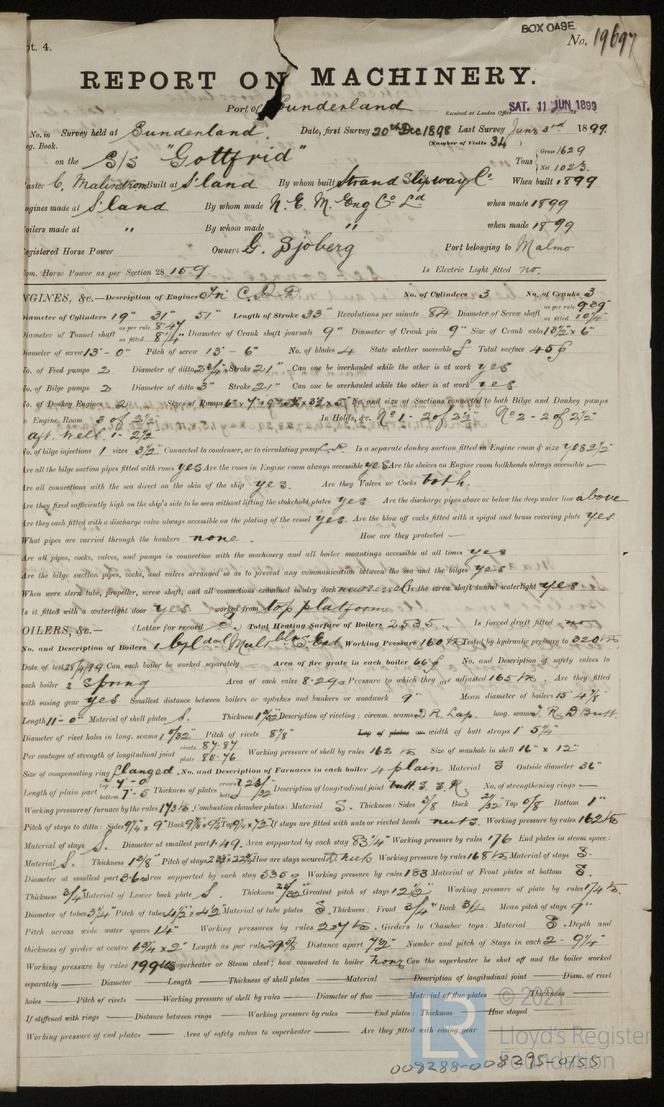 BOX CASE
pt. 4.
No. 19697
REPORT ON MACHINERY.
Port of Sunderland
Received at London Office SAT. 11 JUN 1899
No. in Survey held at Sunderland. Date, first Survey 20th Dec 1898 Last Survey June 3rd 1899.
eg. Book. (Number of Visits 34)
on the S/S "Gottfrid" Tons { Gross 1629
Net 1023.
aster C. Malmstrom Built at S'land By whom built Strand Slipway Co When built 1899
ngines made at S'land By whom made N. E. M. Eng Co Ld when made 1899
oilers made at " By whom made " when made 1899
egistered Horse Power Owners G. Sjoberg Port belonging to Malmo
om. Horse Power as per Section 28 159 Is Electric Light fitted no.
NGINES, &c.—Description of Engines Tri C. D. A No. of Cylinders 3 No. of Cranks 3
Diameter of Cylinders 19" 31" 51" Length of Stroke 33" Revolutions per minute 84 Diameter of Screw shaft as per rule as fitted 10¼"
Diameter of Tunnel shaft as per rule 8.47 as fitted 8¾" Diameter of Crank shaft journals 9" Diameter of Crank pin 9" Size of Crank webs 10½ x 6"
Diameter of screw 13'-0" Pitch of screw 13'-6" No. of blades 4 State whether moveable Total surface 45
No. of Feed pumps 2 Diameter of ditto Stroke 21" Can one be overhauled while the other is at work yes
No. of Bilge pumps 2 Diameter of ditto 3" Stroke 21" Can one be overhauled while the other is at work yes.
No. of Donkey Engines 2 Sizes of Pumps No. and size of Suctions connected to both Bilge and Donkey pumps
n Engine Room 3 of 2½" In Holds, &c. No 1 - 2 of 2½" No 2 - 2 of 2½"
aft. well. 1 - 2½
No. of bilge injections 1 sizes 3½" Connected to condenser, or to circulating pump C.P. Is a separate donkey suction fitted in Engine room & size yes 2½"
Are all the bilge suction pipes fitted with roses yes Are the roses in Engine room always accessible yes Are the sluices on Engine room bulkheads always accessible —
Are all connections with the sea direct on the skin of the ship yes. Are they Valves or Cocks both.
Are they fixed sufficiently high on the ship's side to be seen without lifting the stokehold plates yes Are the discharge pipes above or below the deep water line above
Are they each fitted with a discharge valve always accessible on the plating of the vessel yes Are the blow off cocks fitted with a spigot and brass covering plate yes
What pipes are carried through the bunkers none. How are they protected —
Are all pipes, cocks, valves, and pumps in connection with the machinery and all boiler mountings accessible at all times yes
Are the bilge suction pipes, cocks, and valves arranged so as to prevent any communication between the sea and the bilges yes
When were stern tube, propeller, screw shaft, and all connections examined in dry dock new vessel Is the screw shaft tunnel watertight yes
Is it fitted with a watertight door yes worked from top platform
OILERS, &c.— (Letter for record S.) Total Heating Surface of Boilers 2535. Is forced draft fitted no
No. and Description of Boilers Working Pressure 160 lbs Tested by hydraulic pressure to 320 lbs
Date of test Can each boiler be worked separately Area of fire grate in each boiler 66 No. and Description of safety valves to
each boiler 2 Spring Area of each valve 8.29 Pressure to which they are adjusted 165 lbs. Are they fitted
with easing gear yes Smallest distance between boilers or uptakes and bunkers or woodwork 9" Mean diameter of boilers 15'-4⅞
Length 11'-0" Material of shell plates S. Thickness Description of riveting: circum. seams D R Lap. long. seams T. R D Butt.
Diameter of rivet holes in long. seams Pitch of rivets 8⅞" Lap of plates or width of butt straps 1' 5¾"
Per centages of strength of longitudinal joint rivets 87.87 plate 85.76 Working pressure of shell by rules 162 lbs Size of manhole in shell 16" x 12"
Size of compensating ring flanged. No. and Description of Furnaces in each boiler 4 plain Material S Outside diameter 36"
Length of plain part top 7'-0 bottom 7'-5 Thickness of plates Description of longitudinal joint No. of strengthening rings —
Working pressure of furnace by the rules Combustion chamber plates: Material S. Thickness: Sides Back Top Bottom 1"
Pitch of stays to ditto: Sides Back Top If stays are fitted with nuts or riveted heads nuts. Working pressure by rules 162 lbs
Material of stays S. Diameter at smallest part 1.49. Area supported by each stay 83¼" Working pressure by rules 176 End plates in steam space:
Material S. Thickness Pitch of stays How are stays secured Working pressure by rules 168 lbs Material of stays S.
Diameter at smallest part Area supported by each stay 535 Working pressure by rules 183 Material of Front plates at bottom S.
Thickness ¾" Material of Lower back plate S. Thickness Greatest pitch of stays 12½" Working pressure of plate by rules
Diameter of tubes 3¼" Pitch of tubes 4½ x 4½ Material of tube plates S. Thickness: Front ¾" Back ¾ Mean pitch of stays 9"
Pitch across wide water spaces 14" Working pressures by rules Girders to Chamber tops: Material S. Depth and
thickness of girder at centre 6¾ x 2" Length as per rule Distance apart 7½" Number and pitch of Stays in each 2 - 9¼"
Working pressure by rules Superheater or Steam chest; how connected to boiler none Can the superheater be shut off and the boiler worked
separately — Diameter — Length — Thickness of shell plates — Material — Description of longitudinal joint — Diam. of rivet
holes — Pitch of rivets — Working pressure of shell by rules — Diameter of flue — Material of flue plates — Thickness —
If stiffened with rings — Distance between rings — Working pressure by rules — End plates: Thickness — How stayed
Working pressure of end plates — Area of safety valves to superheater — Are they fitted with easing gear
© 2021
LR
Lloyd's Register
Foundation
008288-008295-0155